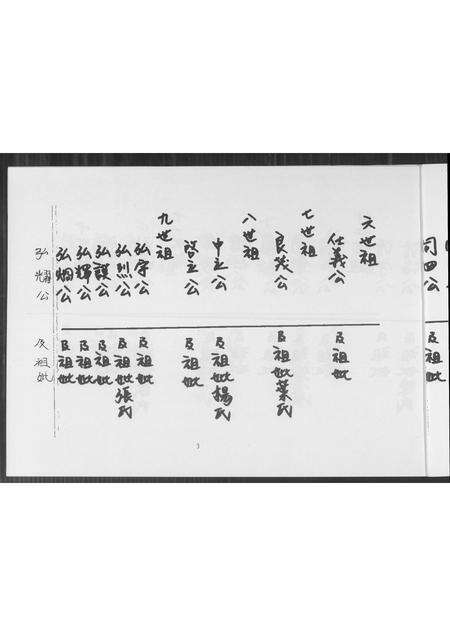 司四公 及祖妣
六世祖
仕義公 及祖妣
七世祖
良茂公 及祖妣葉氏
八世祖
中立公 及祖妣楊氏
啓立公 及祖妣
九世祖
弘宇公 及祖妣
弘烈公 及祖妣張氏
弘謨公 及祖妣
弘輝公 及祖妣
弘炯公 及祖妣
弘耀公 及祖妣
3